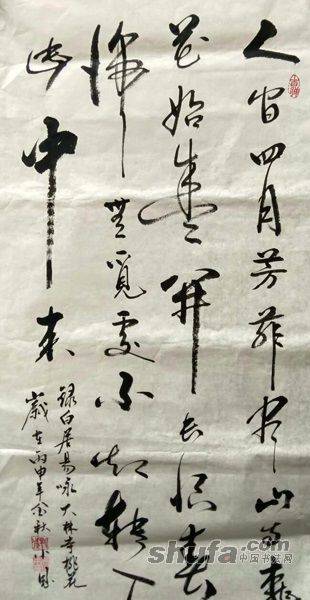 人間四月芳菲尽山寺桃
花始盛開长恨春
歸無覓處不知轉入
此中来
録白居易咏大林寺桃花
歲在丙申年金秋
shufa.com
中国书法网